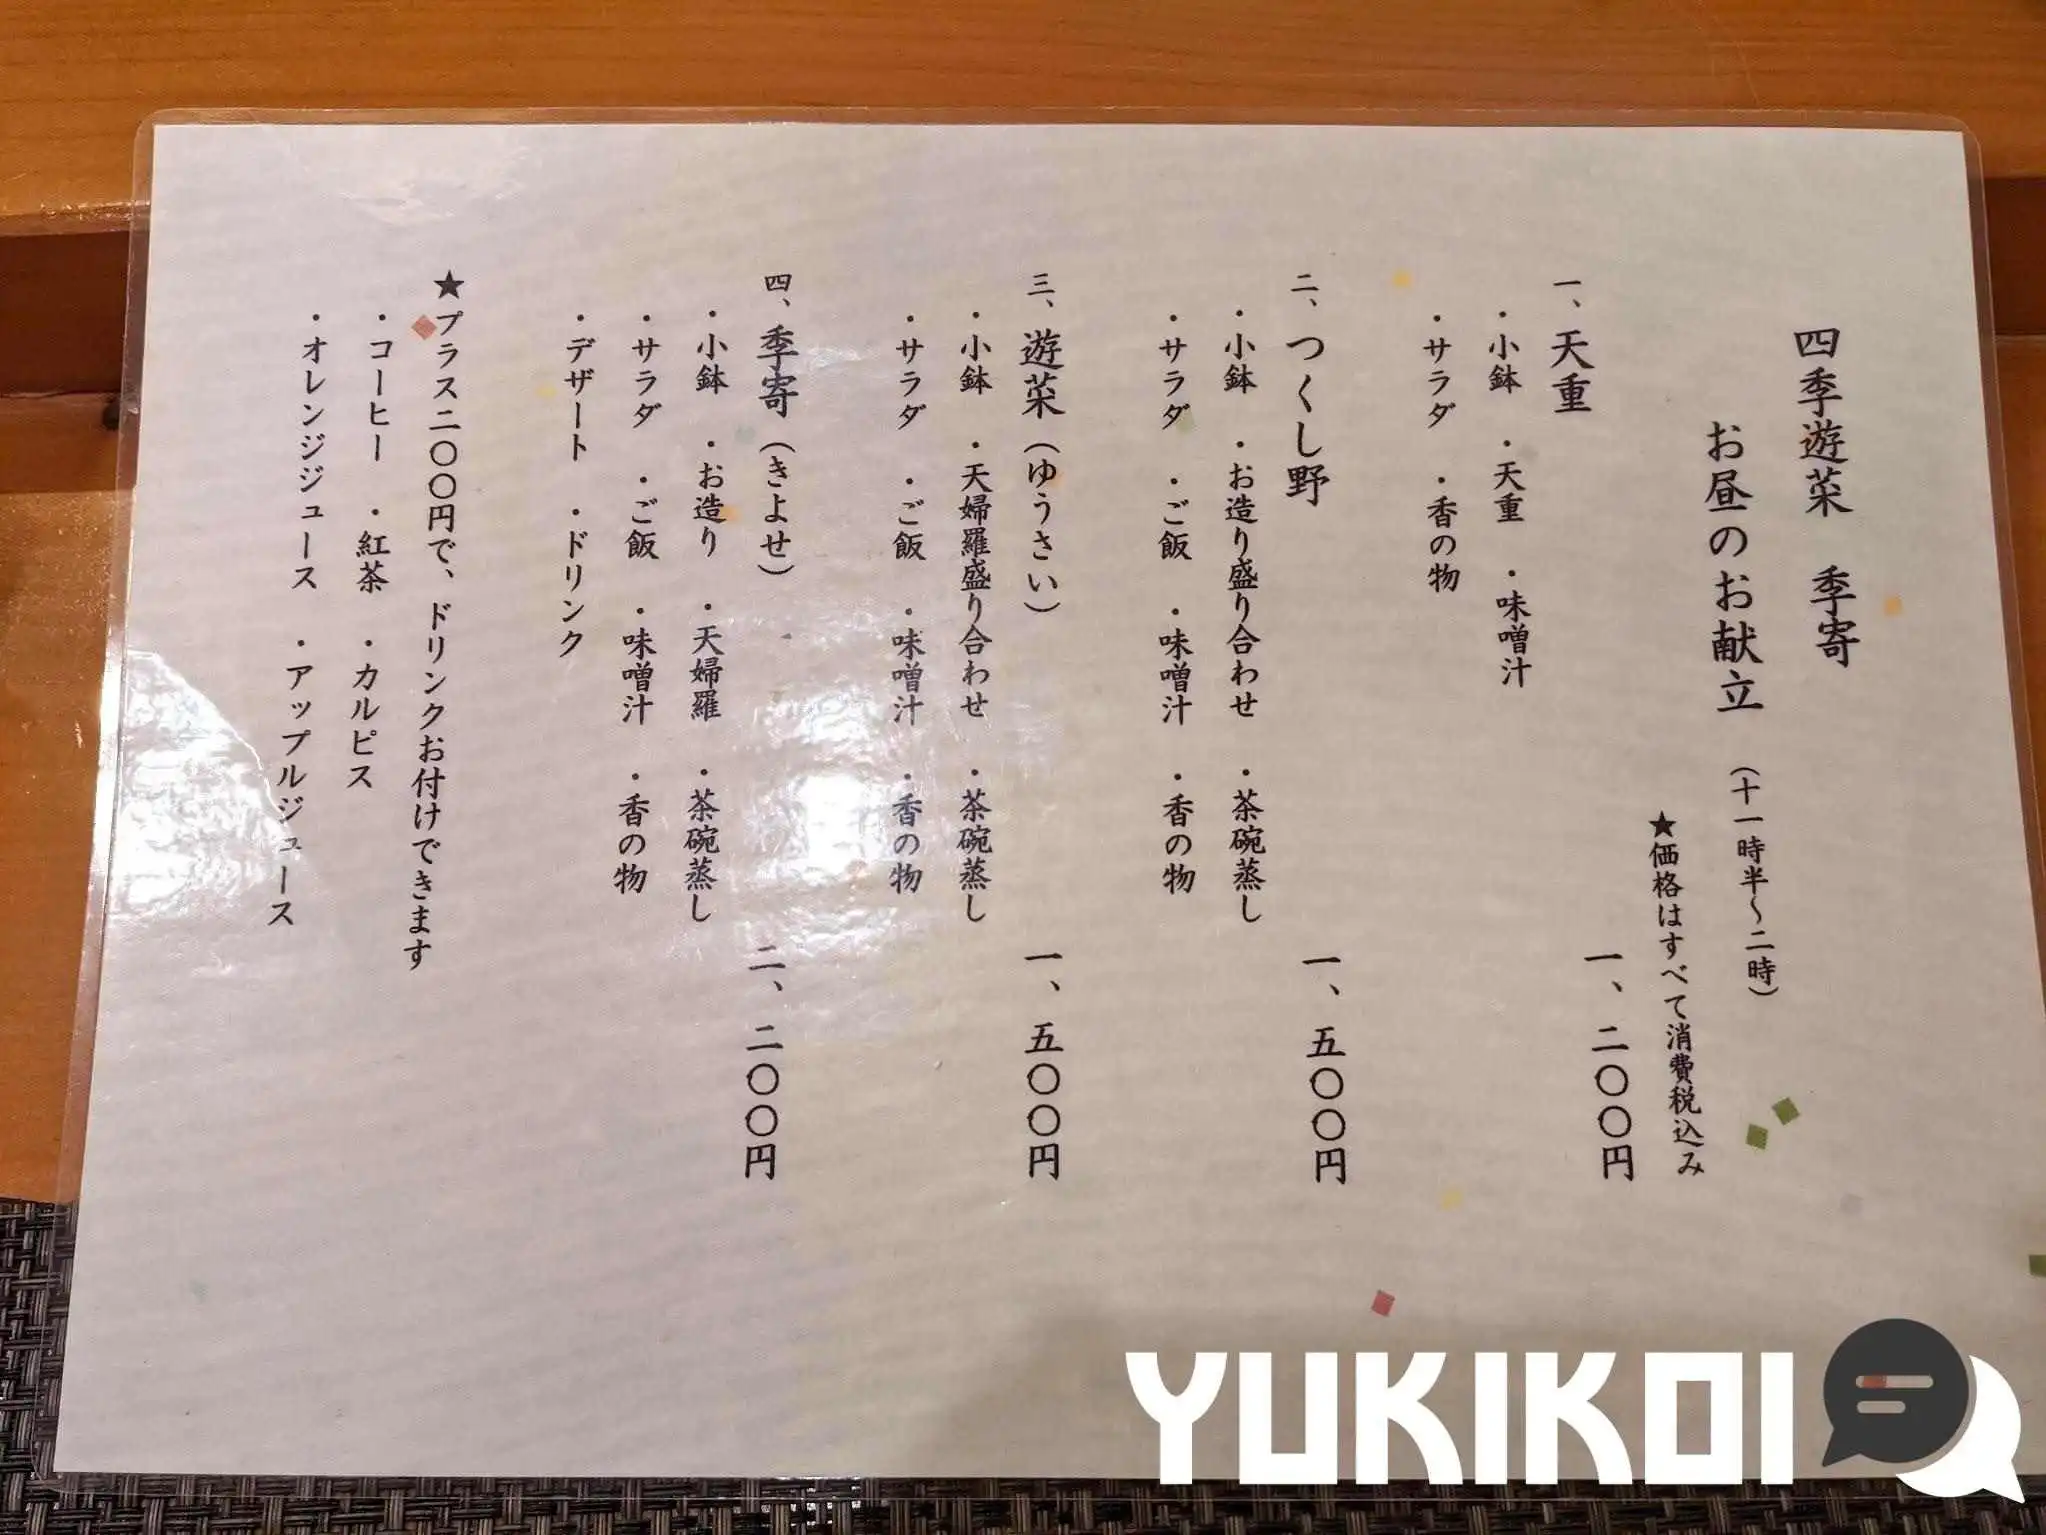 四季遊菜　季寄
お昼のお献立（十一時半～二時）
★価格はすべて消費税込み
一、天重　一、二〇〇円
・小鉢　・天重　・味噌汁
・サラダ　・香の物
二、つくし野　一、五〇〇円
・小鉢　・お造り盛り合わせ　・茶碗蒸し
・サラダ　・ご飯　・味噌汁　・香の物
三、遊菜（ゆうさい）　一、五〇〇円
・小鉢　・天婦羅盛り合わせ　・茶碗蒸し
・サラダ　・ご飯　・味噌汁　・香の物
四、季寄（きよせ）　二、二〇〇円
・小鉢　・お造り　・天婦羅　・茶碗蒸し
・サラダ　・ご飯　・味噌汁　・香の物
・デザート　・ドリンク
★プラス二〇〇円で、ドリンクお付けできます
・コーヒー　・紅茶　・カルピス
・オレンジジュース　・アップルジュース
YUKIKOI